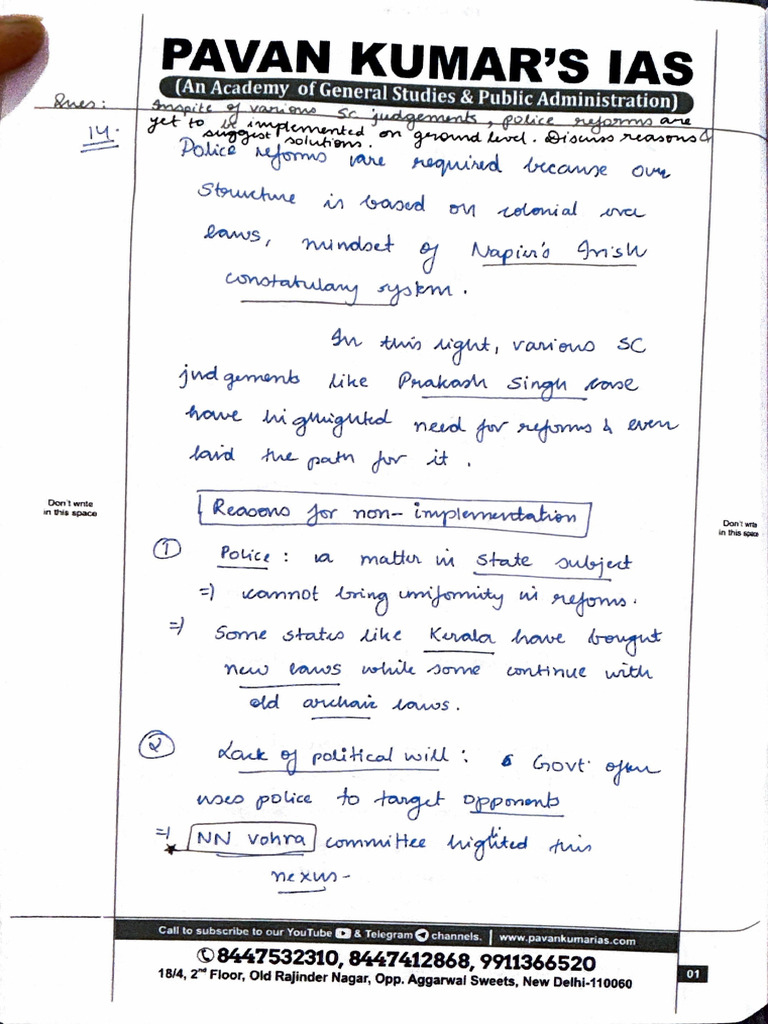 PAVAN KUMAR'S IAS
(An Academy of General Studies & Public Administration)
Ques: Inspite of various SC judgements, police reforms are
14. yet to be implemented on ground level. Discuss reasons &
suggest solutions.
Police reforms are required because our
structure is based on colonial era
laws, mindset of Napier's Irish
constabulary system.
In this light, various SC
judgements like Prakash Singh case
have highlighted need for reforms & even
laid the path for it.
Reasons for non-implementation
① Police: is a matter in state subject
=) cannot bring uniformity in reforms.
=) Some states like Kerala have bought
new laws while some continue with
old archaic laws.
② Lack of political will: Govt. often
uses police to target opponents
=) NN Vohra committee highlited this
nexus-
Don't write
in this space
Don't write
in this space
Call to subscribe to our YouTube & Telegram channels. | www.pavankumarias.com
8447532310, 8447412868, 9911366520
18/4, 2nd Floor, Old Rajinder Nagar, Opp. Aggarwal Sweets, New Delhi-110060
01